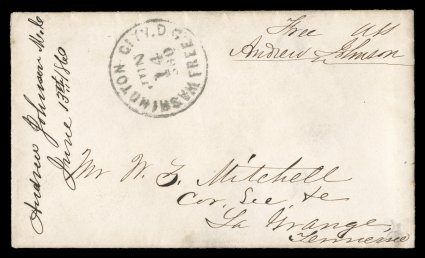 Free USS
Andrew Johnson
WASHINGTON CITY. D.C. FREE
JUN
14
1860
Andrew Johnson
June 13th 1860
Mr W. S. Mitchell
Cor. Sec &c
La Grange,
Tennessee